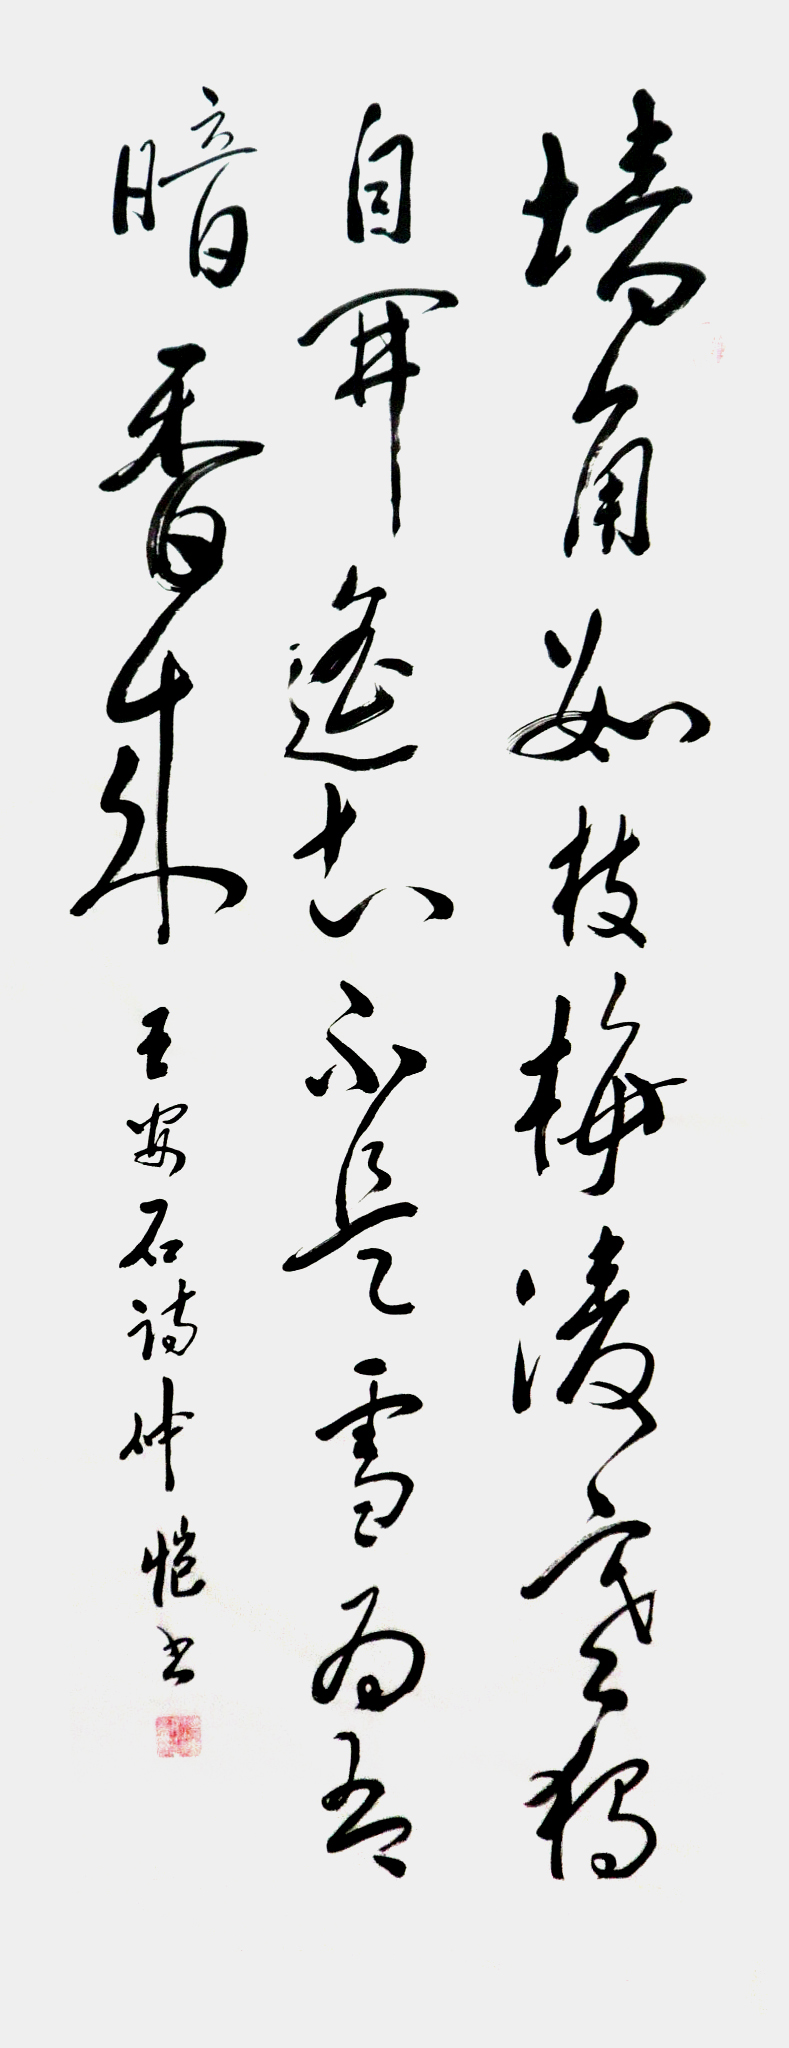 墙角数枝梅凌寒独
自開遥知不是雪为有
暗香来
王安石诗仲恺书